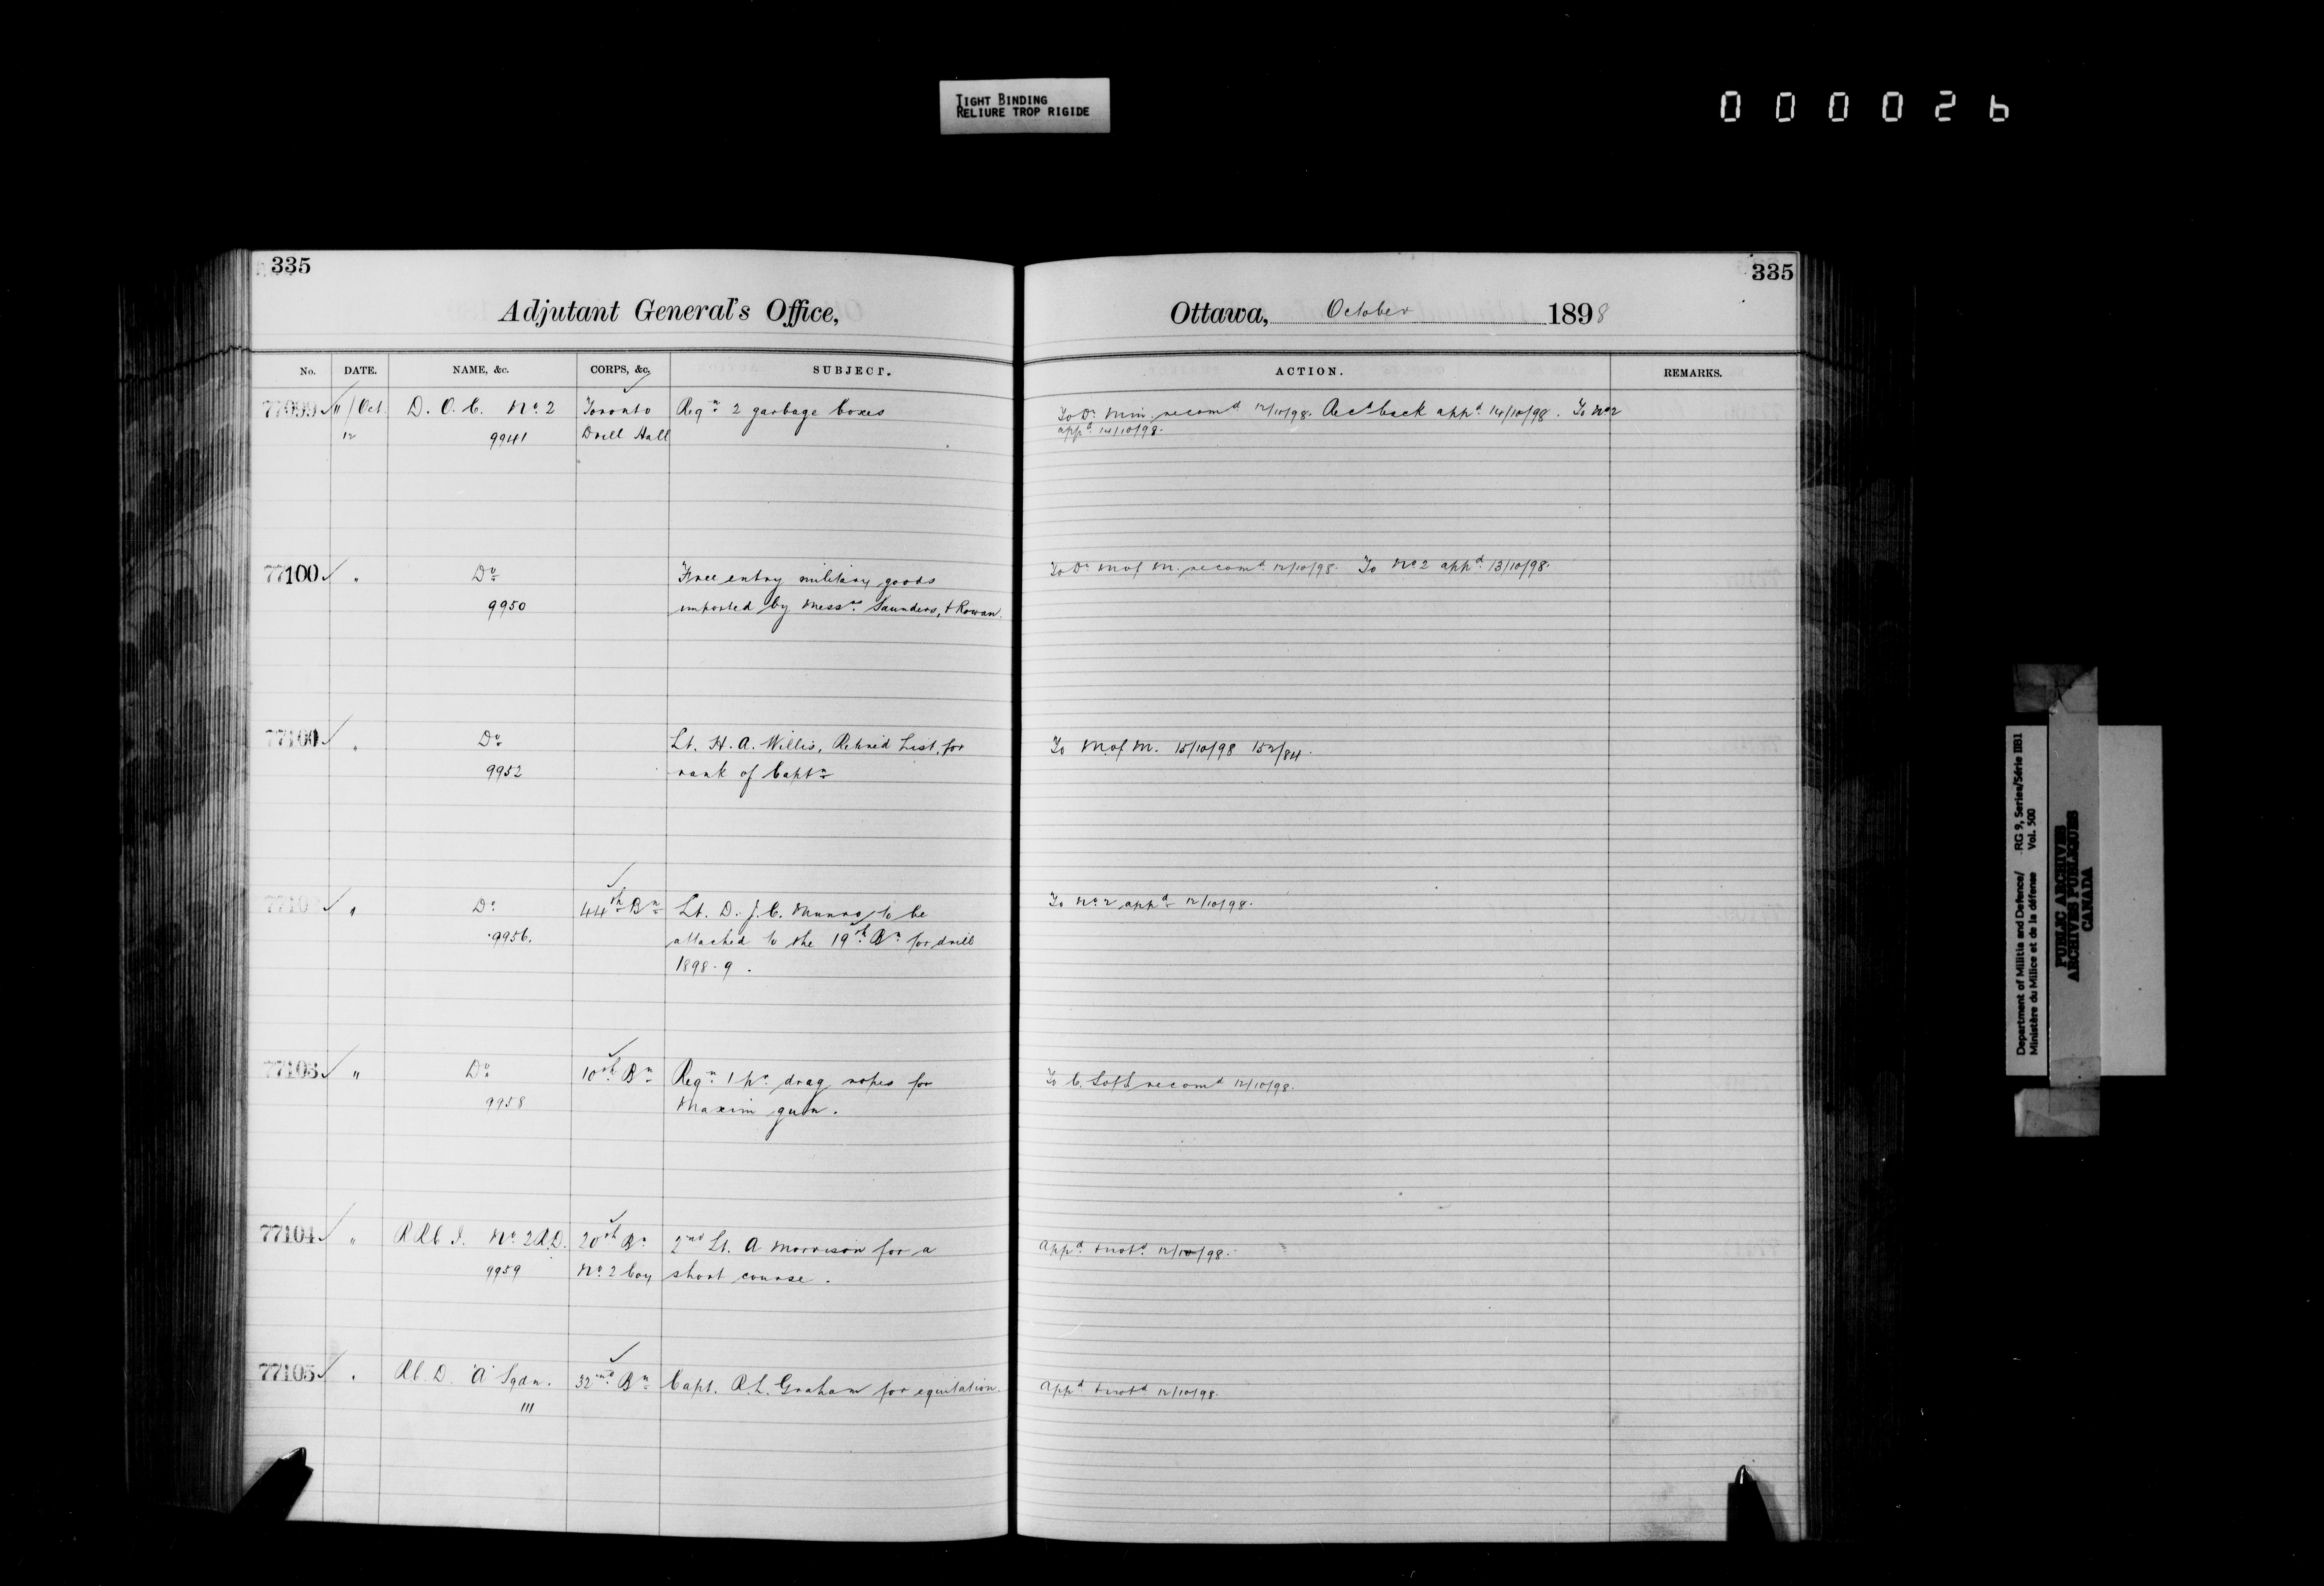 TIGHT BINDING
RELIURE TROP RIGIDE
000026
335
Adjutant General's Office,
No. DATE. NAME, &c. CORPS, &c. SUBJECT.
77099 11/Oct. D. O. C. No. 2 Toronto Reqn. 2 garbage boxes
12 9941 Drill Hall
77100 " Do Free entry military goods
9950 imported by Messrs. Saunders, & Rowan.
" Do Lt. H. A. Willis, Retired List, for
9952 rank of Captn
" Do 44th Bn Lt. D. J. C. Munro to be
9956. attached to the 19th Bn for drill
1898-9.
77103 " Do 10th Bn Reqn 1 pr. drag ropes for
9958 Maxim gun.
77104 " R.R.C.I. No. 2 R.D. 20th Bn 2nd Lt. A Morrison for a
9959 No. 2 Coy short course.
77105 " R.C.D. "A" Sqdn. 32nd Bn Capt. R.L. Graham for equitation.
111
335
Ottawa, October 1898
ACTION. REMARKS.
To D. Min. recomd 12/10/98. Recd back appd 14/10/98. To No 2
appd. 14/10/98.
To D. M of M. recomd 12/10/98. To No 2 appd. 13/10/98.
To M of M. 15/10/98 152/84.
To No. 2 appd 12/10/98.
To C. Supt recomd 12/10/98.
Appd & notd. 12/10/98.
Appd & notd 12/10/98.
Department of Militia and Defence/ RG 9, Series/Série IIB1
Ministère du Milice et de la défense Vol. 500
PUBLIC ARCHIVES
ARCHIVES PUBLIQUES
CANADA